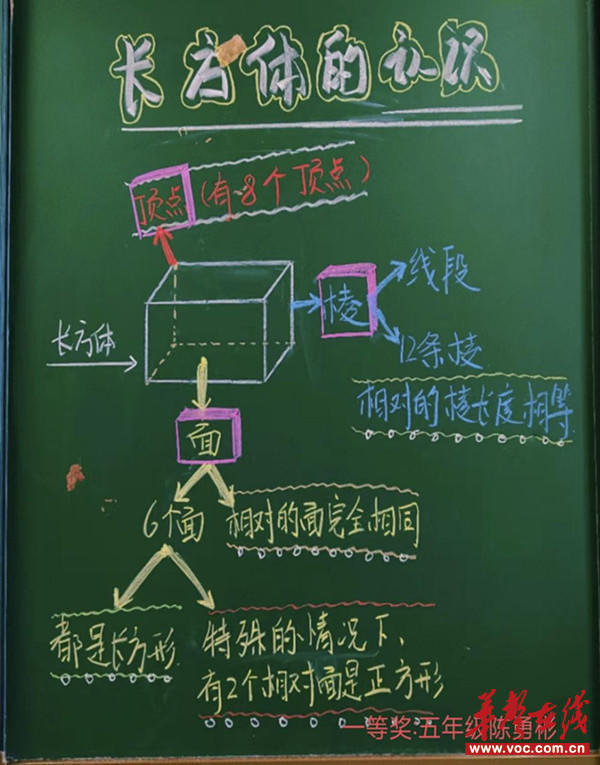 长方体的认识
顶点(有8个顶点)
长方体
棱
线段
12条棱
相对的棱长度相等
面
6个面
相对的面完全相同
都是长方形
特殊的情况下、
有2个相对面是正方形
一等奖:五年级陈勇彬
华声在线
www.voc.com.cn